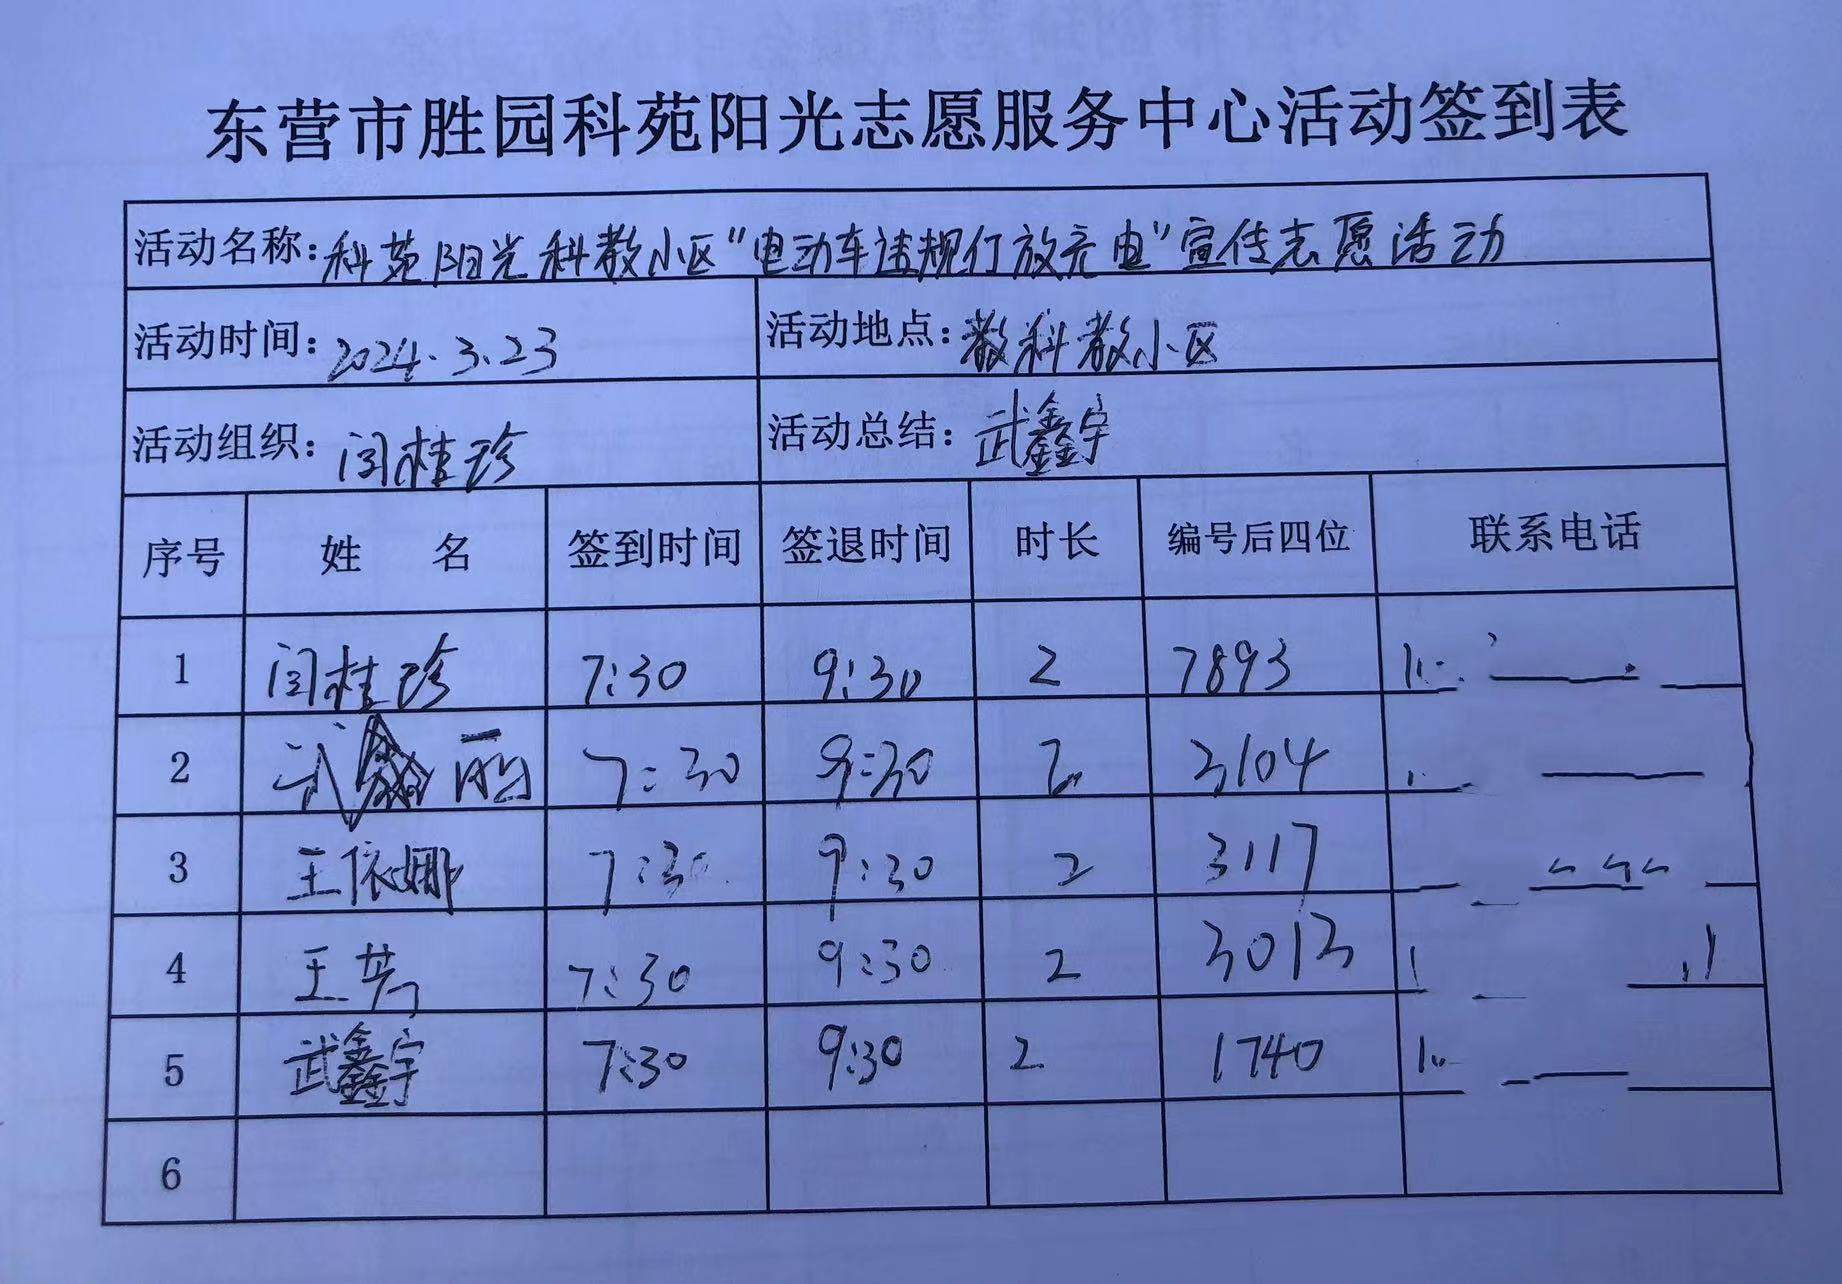 东营市胜园科苑阳光志愿服务中心活动签到表
活动名称:科苑阳光科教小区“电动车违规停放充电”宣传志愿活动
活动时间:2024.3.23 活动地点:科教小区
活动组织:闫桂珍 活动总结:武鑫宇
序号 姓 名 签到时间 签退时间 时长 编号后四位 联系电话
1 闫桂珍 7:30 9:30 2 7893
2 武 丽 7:30 9:30 2 3104
3 王依娜 7:30 9:30 2 3117
4 王芳 7:30 9:30 2 3013
5 武鑫宇 7:30 9:30 2 1740
6